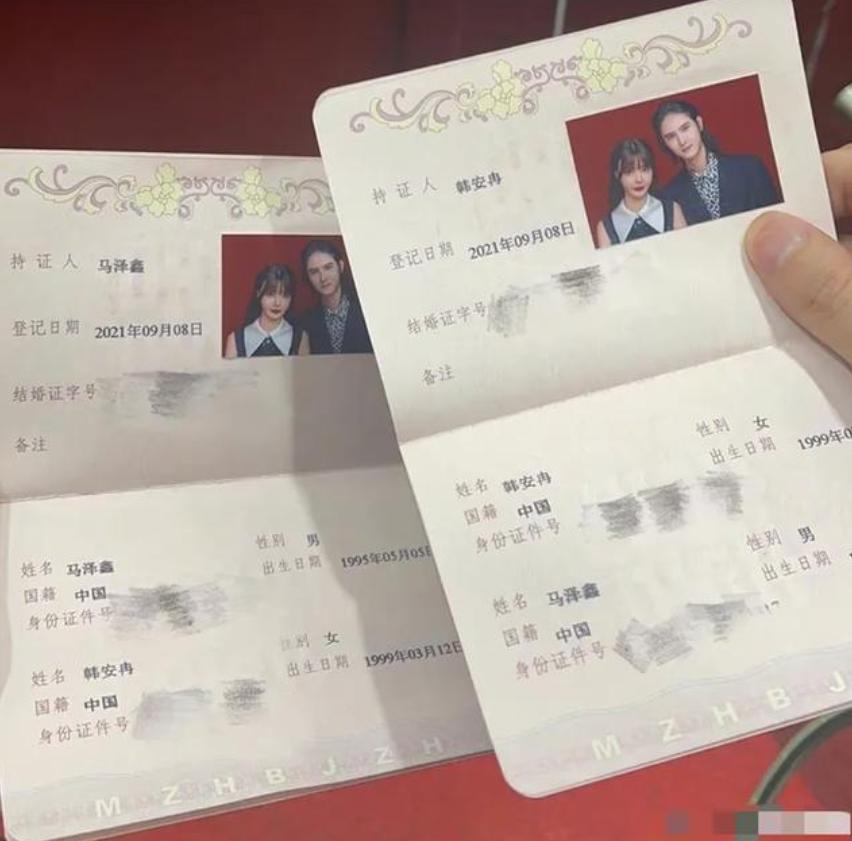 持证人 马泽鑫
登记日期 2021年09月08日
结婚证字号
备注
姓名 马泽鑫 性别 男
国籍 中国 出生日期 1995年05月05日
身份证件号
姓名 韩安冉 性别 女
国籍 中国 出生日期 1999年03月12日
身份证件号
M Z H B J Z H
持证人 韩安冉
登记日期 2021年09月08日
结婚证字号
备注
姓名 韩安冉 性别 女
国籍 中国 出生日期 1999年0
身份证件号
姓名 马泽鑫 性别 男
国籍 中国 出生日期
身份证件号
M Z H B J